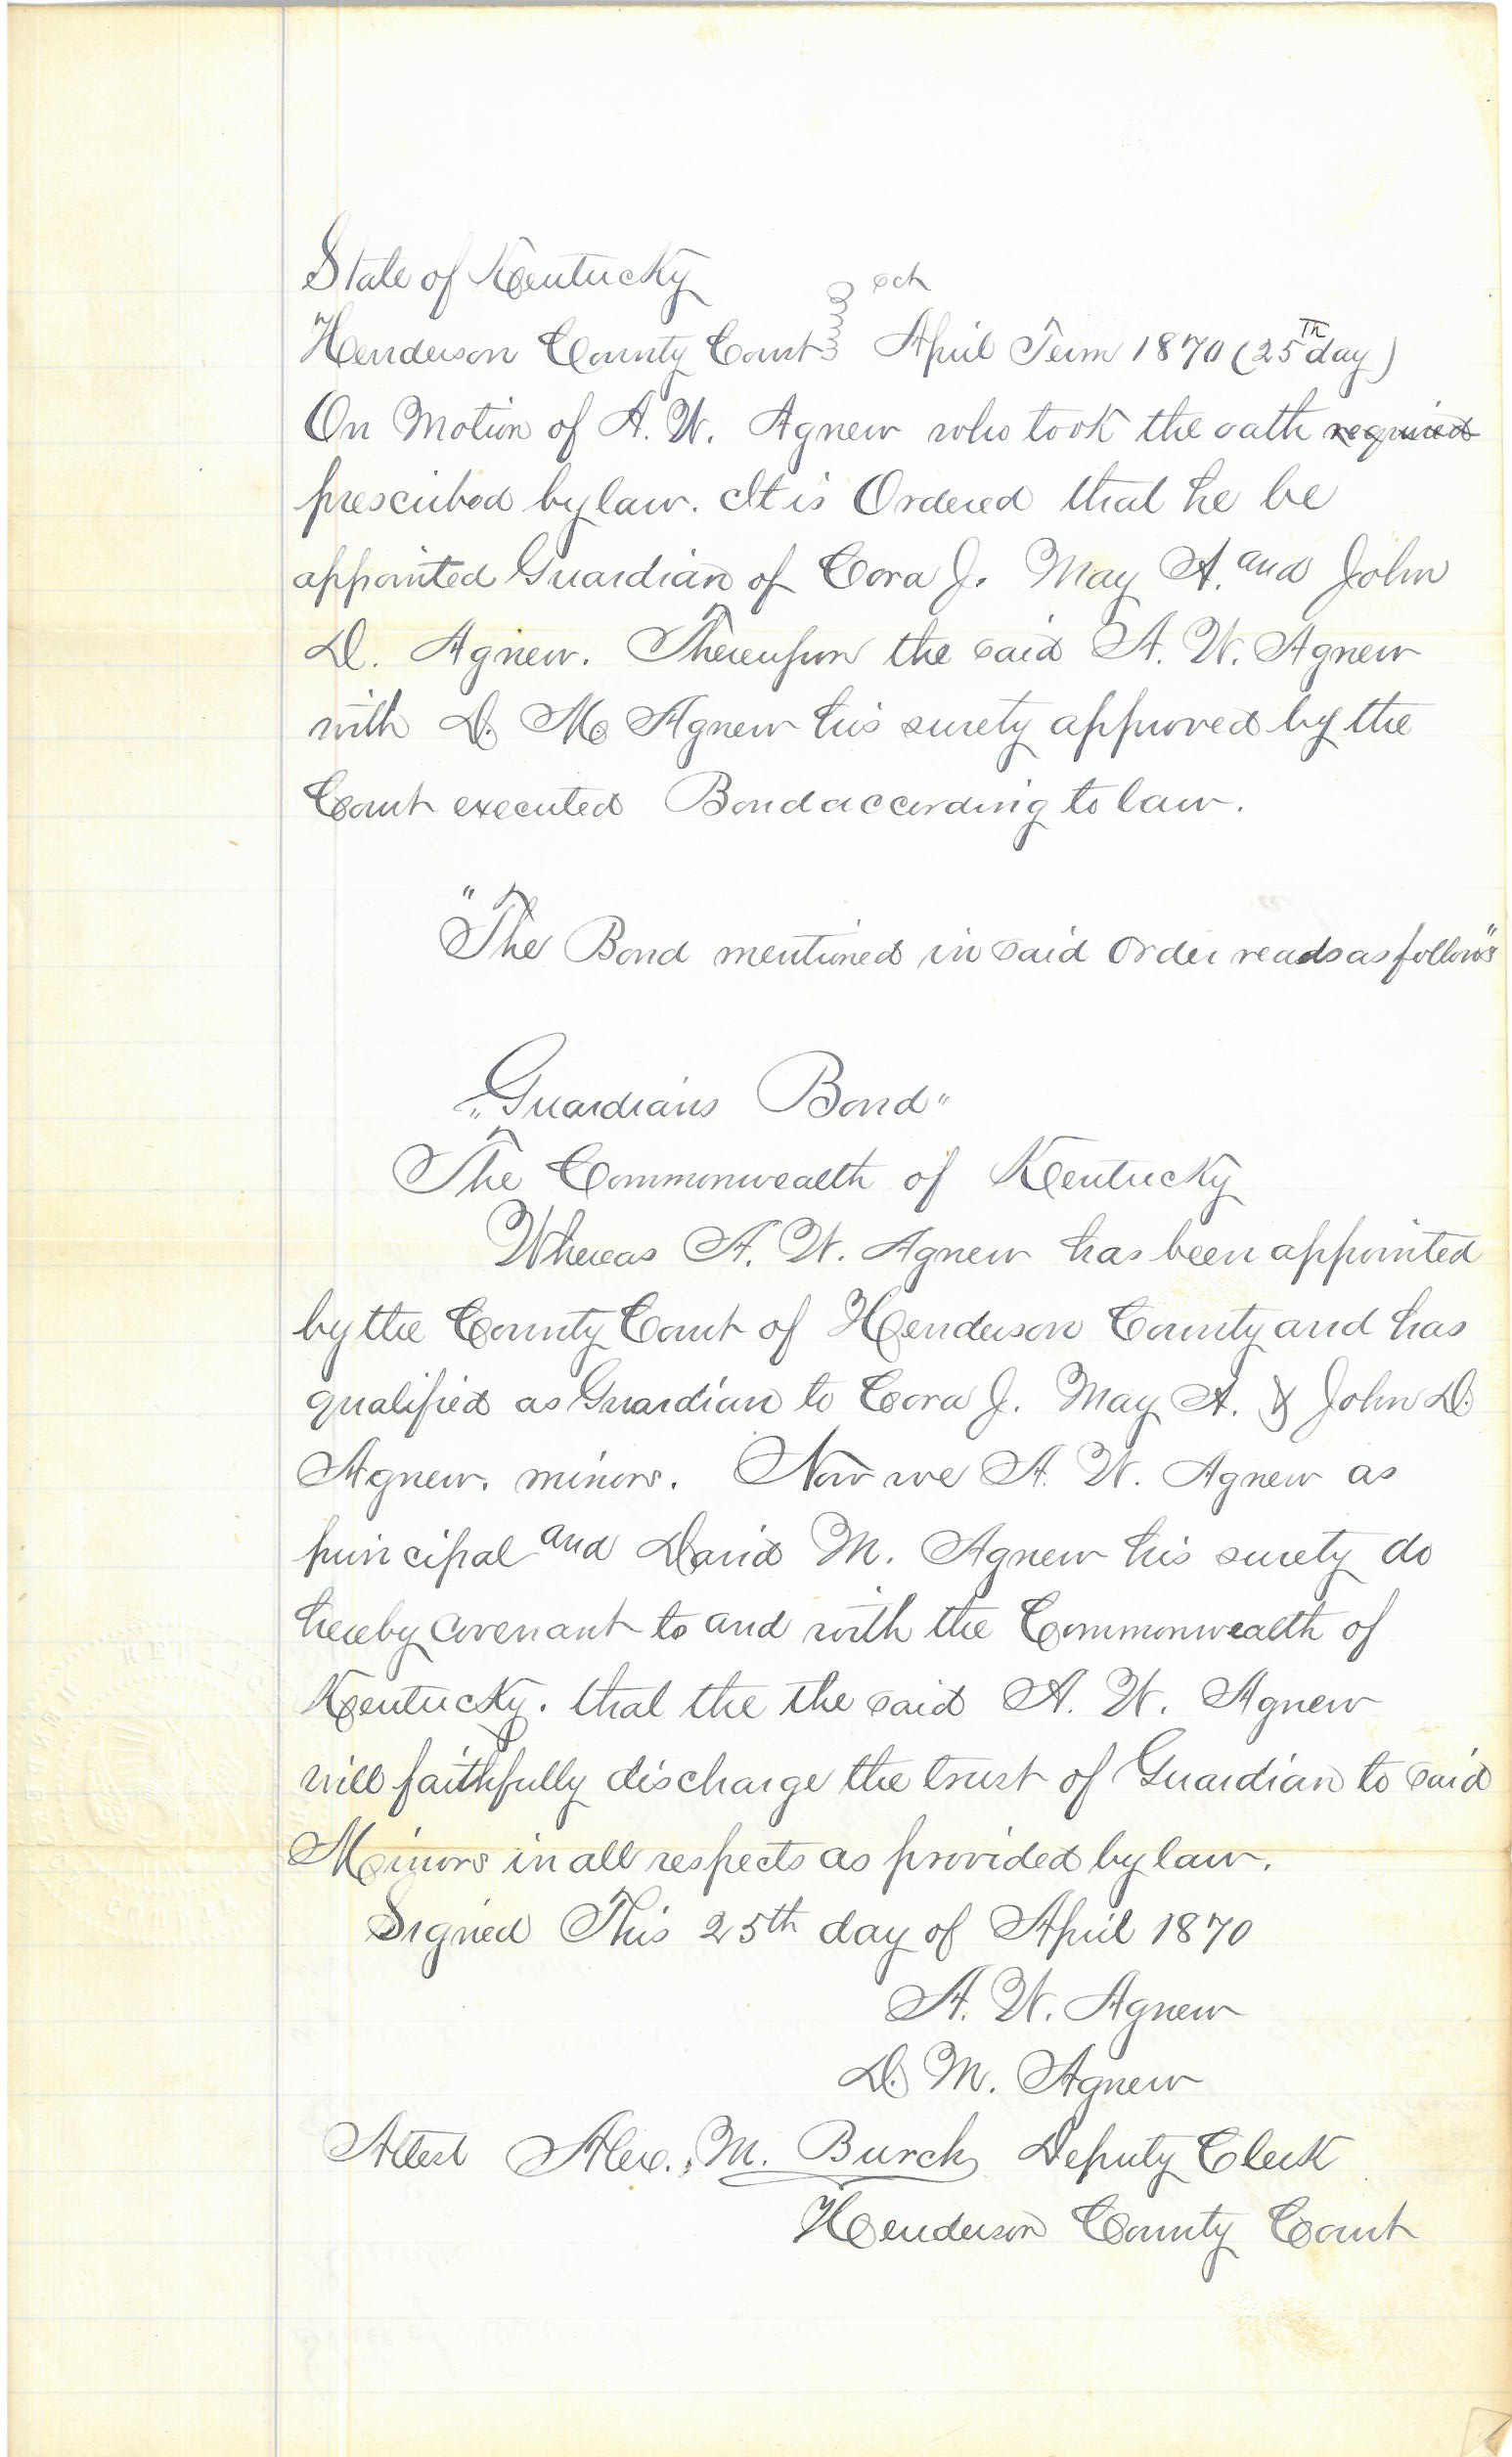 State of Kentucky } sct
Henderson County Court } April Term 1870 (25th day)
On Motion of A. W. Agnew who took the oath required
prescribed by law. It is Ordered that he be
appointed Guardian of Cora J. May A. and John
D. Agnew. Thereupon the said A. W. Agnew
with D. M. Agnew his surety approved by the
Court executed Bond according to law.
"The Bond mentioned in said order reads as follows"
"Guardians Bond"
The Commonwealth of Kentucky
Whereas A. W. Agnew has been appointed
by the County Court of Henderson County and has
qualified as Guardian to Cora J. May A. & John D.
Agnew. minors. Now we A. W. Agnew as
principal and David M. Agnew his surety do
hereby covenant to and with the Commonwealth of
Kentucky. that the the said A. W. Agnew
will faithfully discharge the trust of Guardian to said
Minors in all respects as provided by law.
Signed This 25th day of April 1870
A. W. Agnew
D. M. Agnew
Attest Alex. M. Burck Deputy Clerk
Henderson County Court